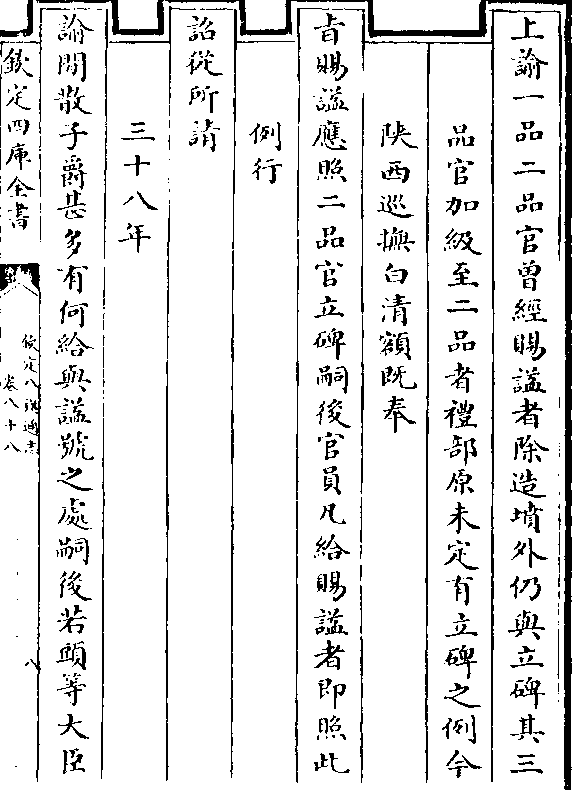 上諭一品二品官曾經賜諡者除造墳外仍與立碑其三
品官加級至二品者禮部原未定有立碑之例今
陜西巡撫白清額既奉
㫖賜諡應照二品官立碑嗣後官員凡給賜諡者即照此
例行
詔從所請
三十八年
諭閒散子爵甚多有何給與諡號之處嗣後若頭等大臣
欽定四庫全書
欽定八旗通志
卷八十八
八